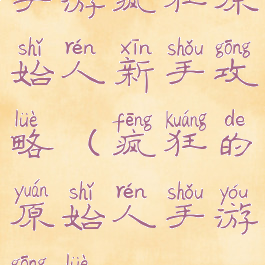 手游疯狂原
shǐ rén xīn shǒu gōng
始人新手攻
lüè fēng kuáng de
略（疯狂的
yuán shǐ rén shǒu yóu
原始人手游
gōng lüè